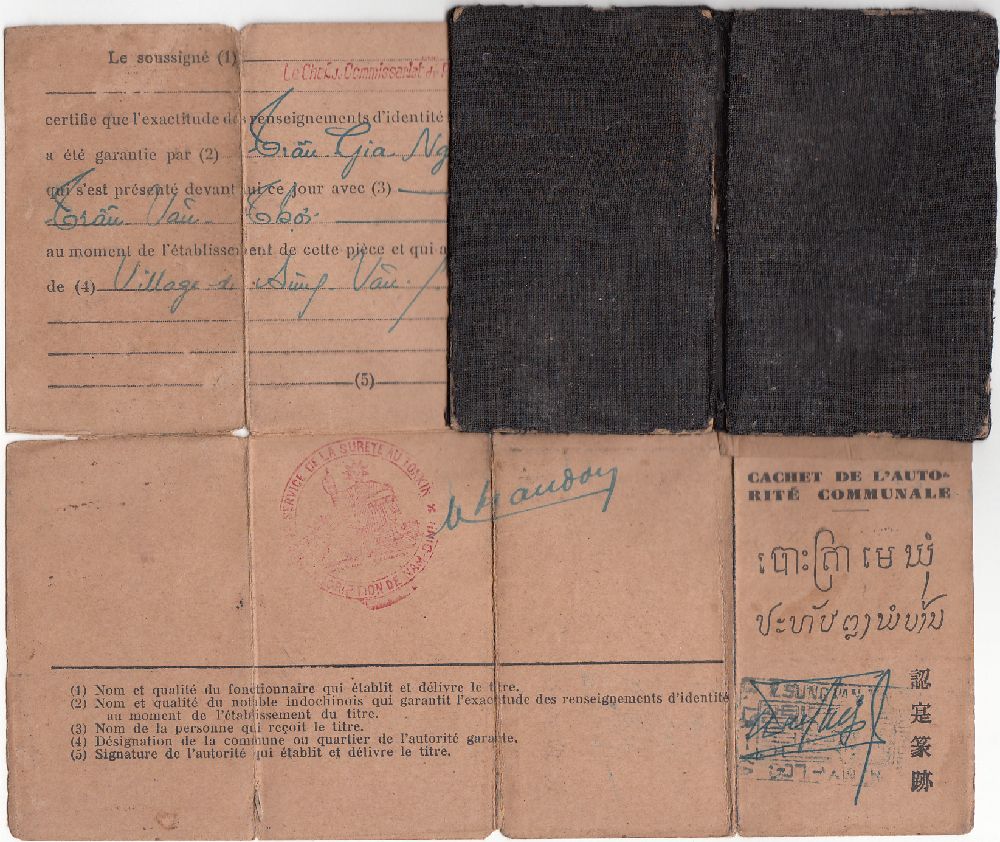 Le soussigné (1)
Le Chef du Commissariat de
certifie que l'exactitude des renseignements d'identité
a été garantie par (2) Trần Gia
qui s'est présenté devant lui ce jour avec (3)
Trần Văn Thọi
au moment de l'établissement de cette pièce et qui a
de (4) Village de Súng Văn
(5)
SERVICE DE LA SURETE AU TONKIN
DE NAM-DINH
CACHET DE L'AUTO-
RITÉ COMMUNALE
បោះត្រា មេ ឃុំ
認寔篆跡
SUNG VAN
(1) Nom et qualité du fonctionnaire qui établit et délivre le titre.
(2) Nom et qualité du notable indochinois qui garantit l'exactitude des renseignements d'identité
au moment de l'établissement du titre.
(3) Nom de la personne qui reçoit le titre.
(4) Désignation de la commune ou quartier de l'autorité garante.
(5) Signature de l'autorité qui établit et délivre le titre.